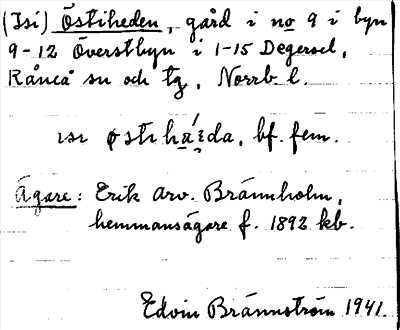 (Isi) Östiheden, gård i no 9 i byn
9-12 Överstbyn i 1-15 Degersel,
Råneå sn och tg, Norrb l.
ısı østıhä́ɛda, bf. fem.
Ägare: Erik Arv. Brännholm,
hemmansägare f. 1892 kb.
Edvin Brännström 1941.